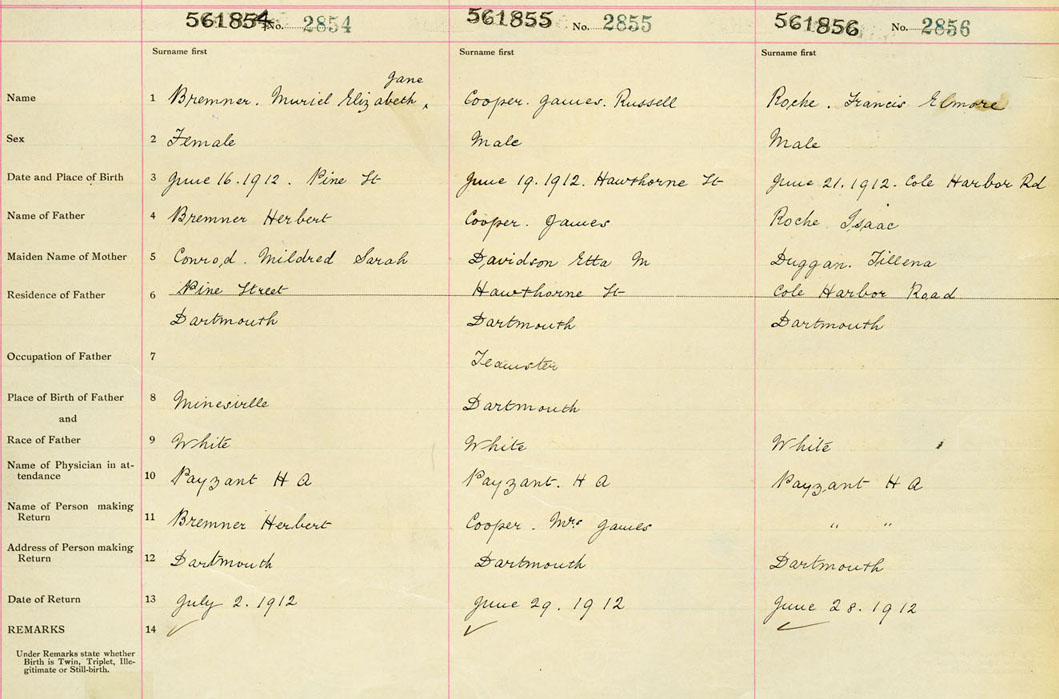 561854 No. 2854 561855 No. 2855 561856 No. 2856
Surname first Surname first Surname first
Jane
Name 1 Bremner. Muriel Elizabeth ‸ Cooper. James. Russell Roche. Francis Elmore
Sex 2 Female Male Male
Date and Place of Birth 3 June 16.1912. Pine St June 19.1912. Hawthorne St June 21.1912. Cole Harbor Rd
Name of Father 4 Bremner Herbert Cooper. James Roche. Isaac
Maiden Name of Mother 5 Conrod. Mildred Sarah Davidson Etta M Duggan. Tillena
Residence of Father 6 Pine Street Hawthorne St Cole Harbor Road
Dartmouth Dartmouth Dartmouth
Occupation of Father 7 Teamster
Place of Birth of Father 8 Minesville Dartmouth
and
Race of Father 9 White White White
Name of Physician in at-
tendance 10 Payzant H A Payzant. H A Payzant H A
Name of Person making
Return 11 Bremner Herbert Cooper. Mrs James " "
Address of Person making
Return 12 Dartmouth Dartmouth Dartmouth
Date of Return 13 July 2.1912 June 29.1912 June 28.1912
REMARKS 14 ✓ ✓ ✓
Under Remarks state whether
Birth is Twin, Triplet, Ille-
gitimate or Still-birth.